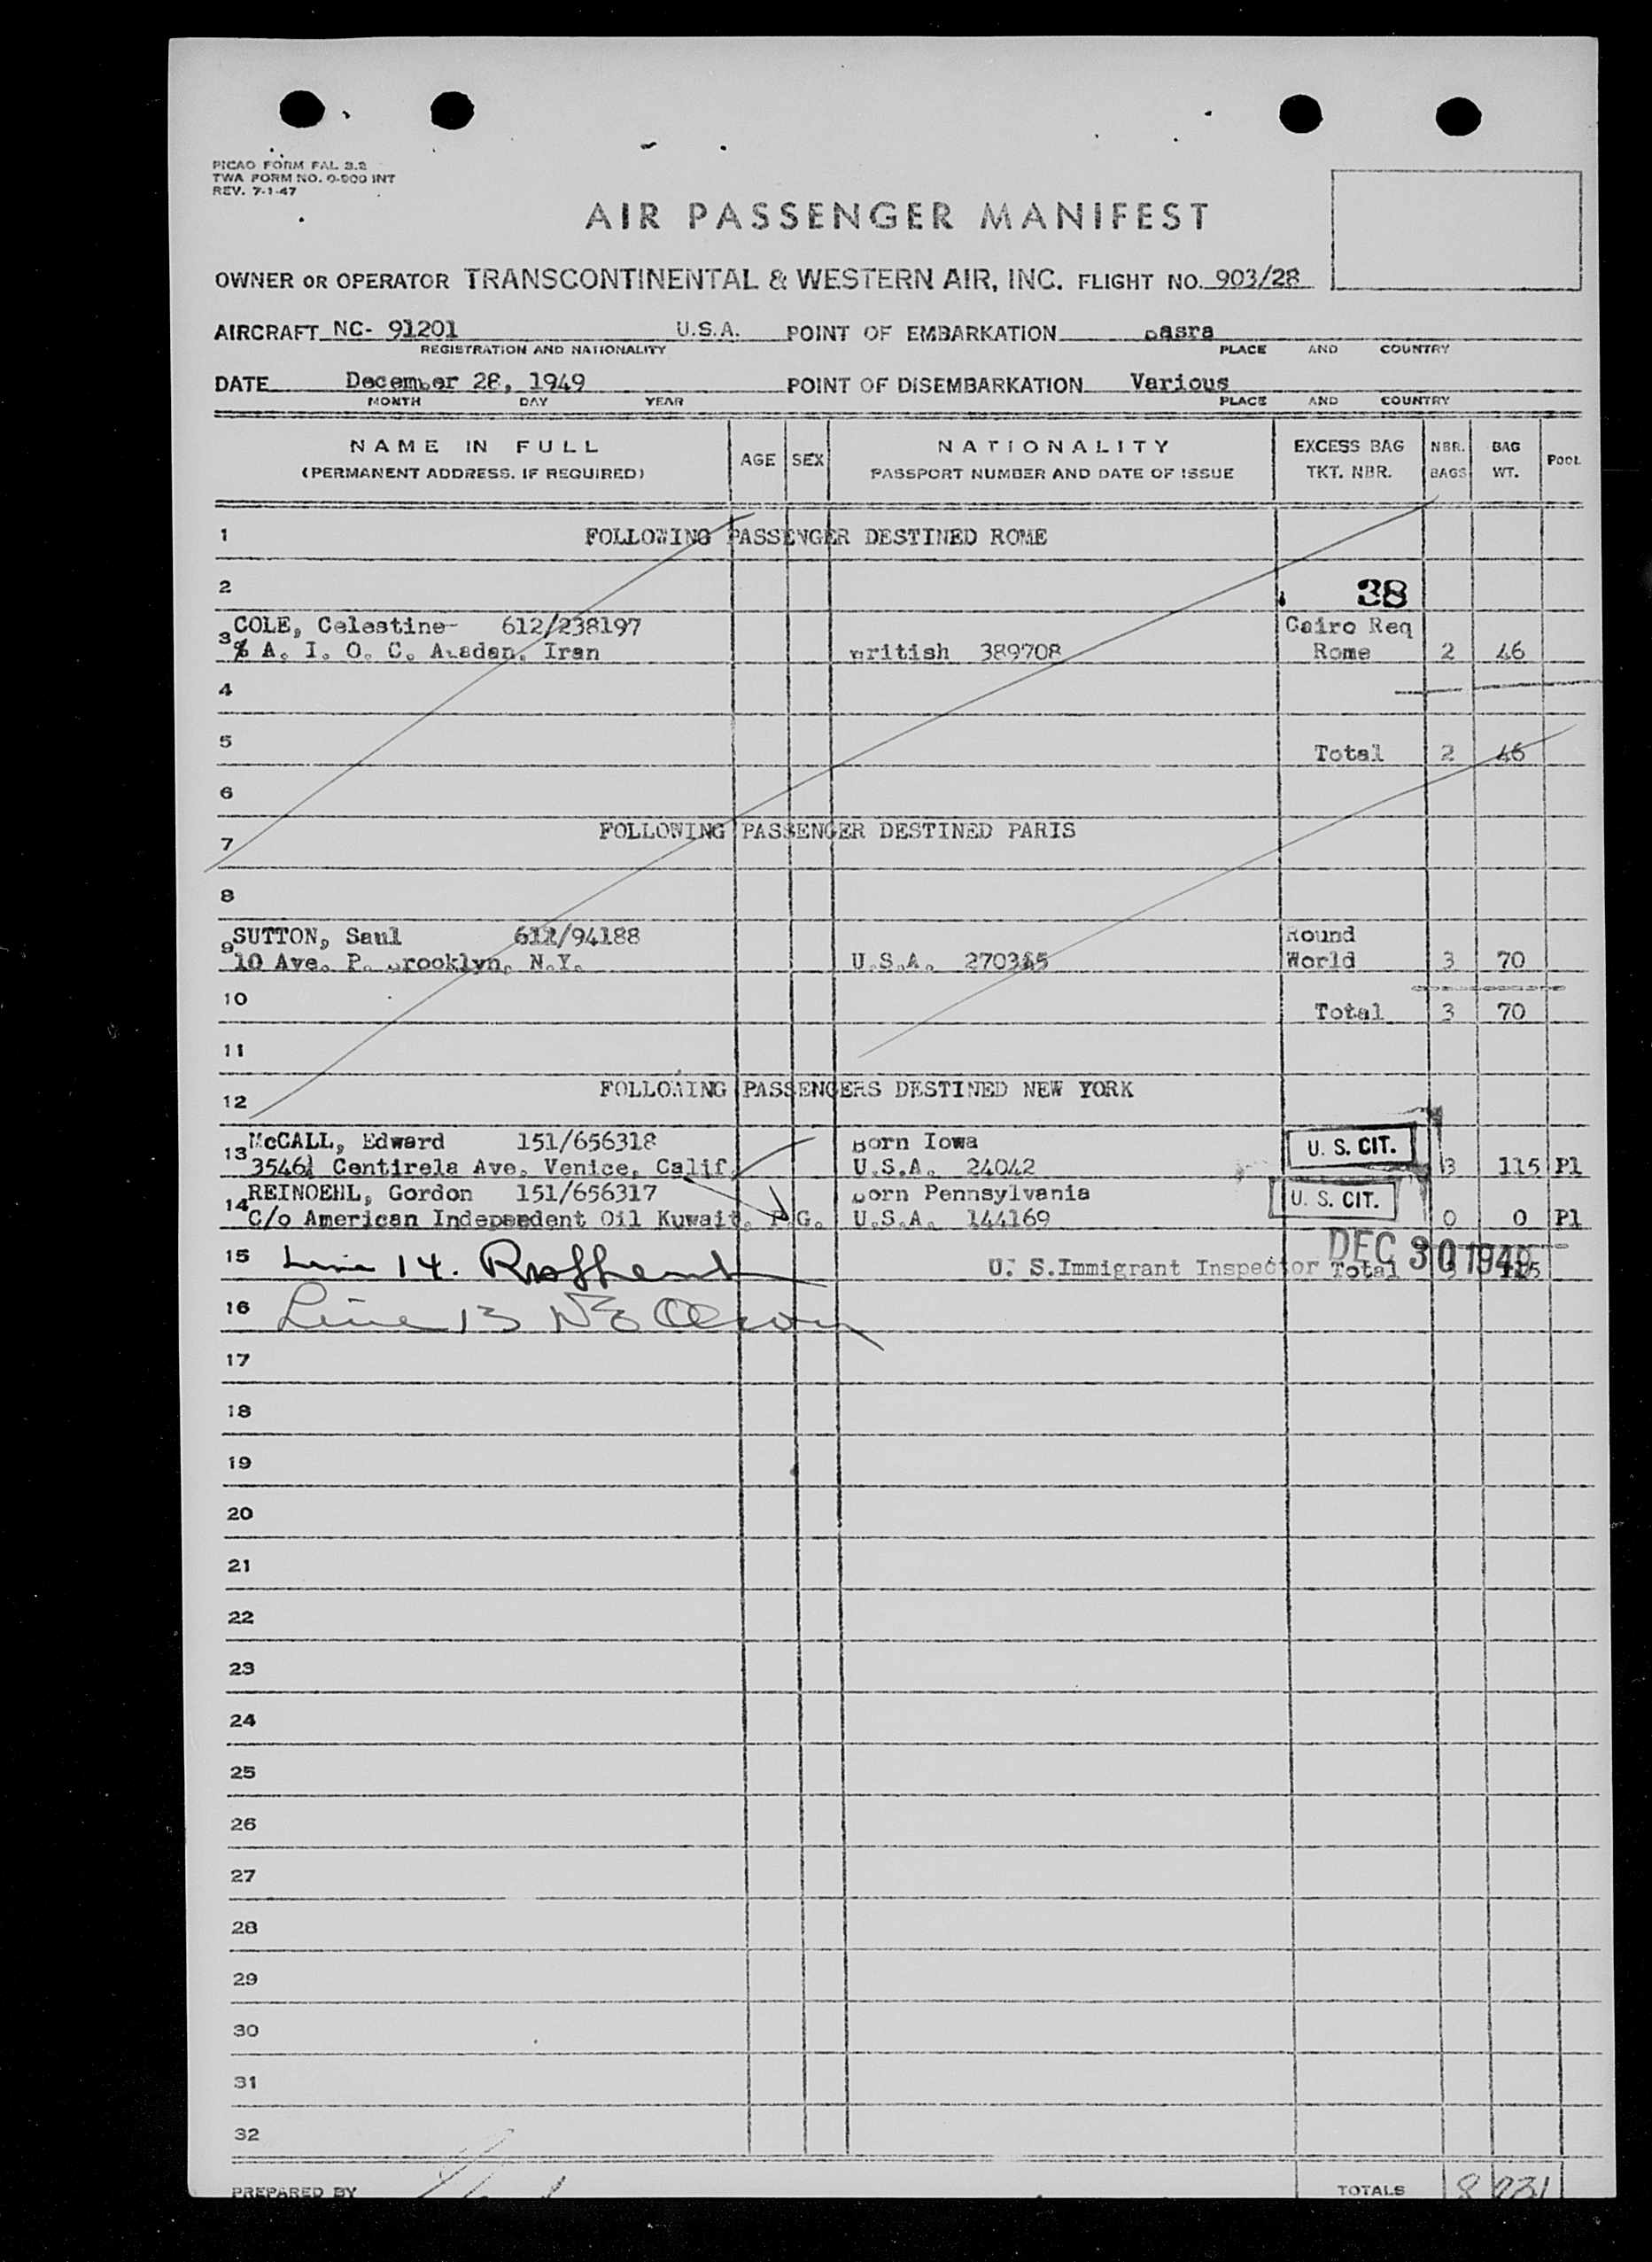 PICAO FORM FAL 2.2
TWA FORM NO. 0-900 INT
REV. 7-1-47
AIR PASSENGER MANIFEST
OWNER OR OPERATOR TRANSCONTINENTAL & WESTERN AIR, INC. FLIGHT NO. 903/28
AIRCRAFT NC- 91201 U.S.A. POINT OF EMBARKATION Basra
REGISTRATION AND NATIONALITY PLACE AND COUNTRY
DATE December 28, 1949 POINT OF DISEMBARKATION Various
MONTH DAY YEAR PLACE AND COUNTRY
NAME IN FULL AGE SEX NATIONALITY EXCESS BAG NBR. BAG POOL
(PERMANENT ADDRESS. IF REQUIRED) PASSPORT NUMBER AND DATE OF ISSUE TKT. NBR. BAGS WT.
1 FOLLOWING PASSENGER DESTINED ROME
2 38
COLE, Celestine 612/238197 Cairo Req
3 % A. I. O. C. Abadan, Iran British 389708 Rome 2 46
4
5 Total 2 46
6
7 FOLLOWING PASSENGER DESTINED PARIS
8
SUTTON, Saul 612/94188 Round
9 10 Ave. P. Brooklyn, N.Y. U.S.A. World 3 70
10 Total 3 70
11
12 FOLLOWING PASSENGERS DESTINED NEW YORK
McCALL, Edward 151/656318 Born Iowa U. S. CIT.
13 3546½ Centirela Ave. Venice, Calif. U.S.A. 24042 3 115 Pl
REINOEHL, Gordon 151/656317 Born Pennsylvania U. S. CIT.
14 C/o American Independent Oil Kuwait. P.G. U.S.A. 144169 0 0 Pl
15 Line 14. U. S. Immigrant Inspector Total 3 115
DEC 30 1949
16 Line 13
17
18
19
20
21
22
23
24
25
26
27
28
29
30
31
32
PREPARED BY TOTALS 8 231